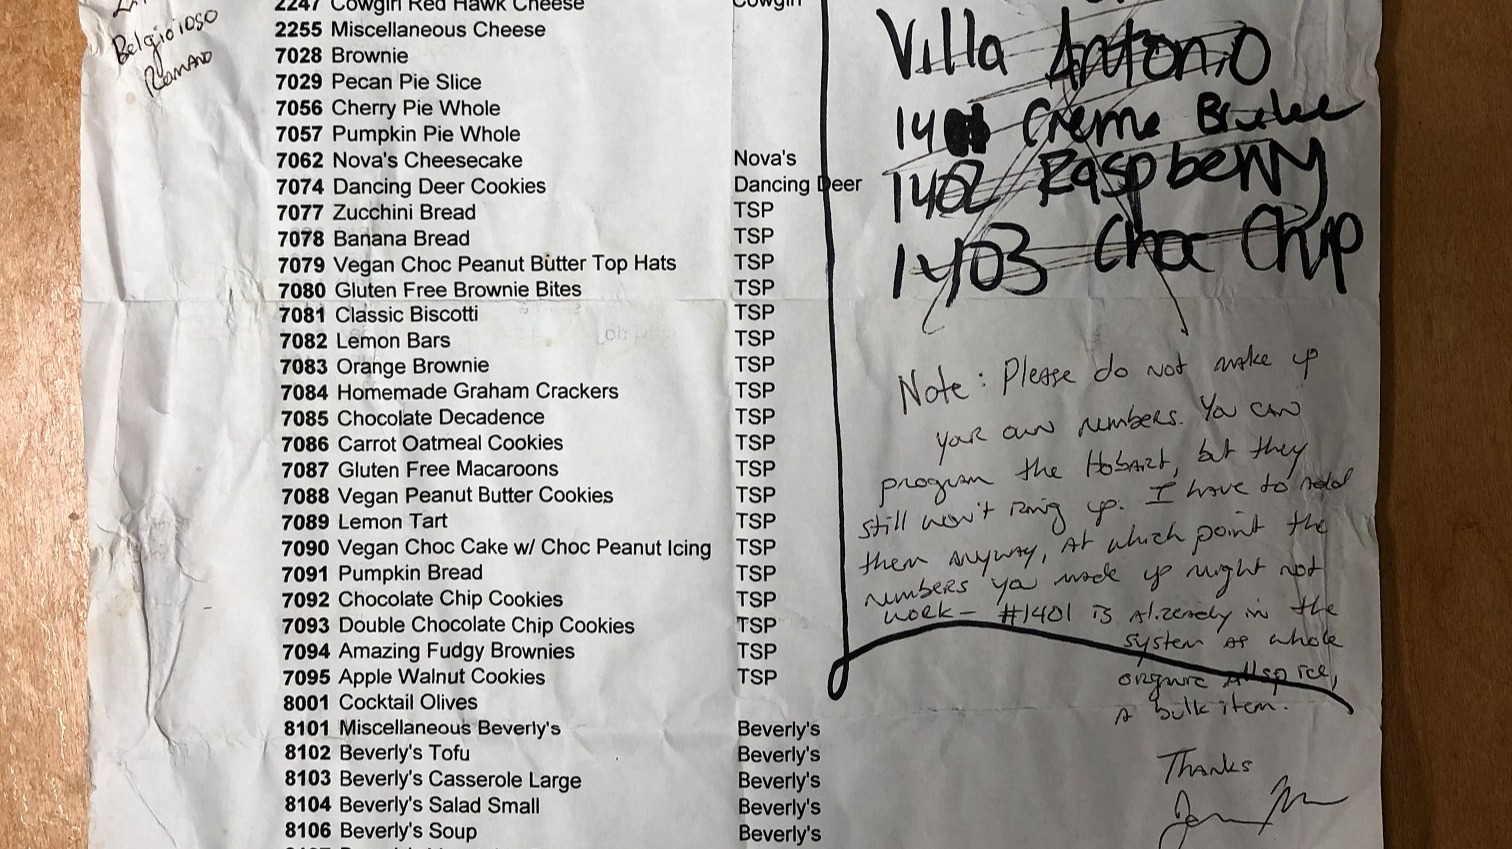 Belgioioso
Romano
2247 Cowgirl Red Hawk Cheese Cowgirl
2255 Miscellaneous Cheese
7028 Brownie
7029 Pecan Pie Slice
7056 Cherry Pie Whole
7057 Pumpkin Pie Whole
7062 Nova's Cheesecake Nova's
7074 Dancing Deer Cookies Dancing Deer
7077 Zucchini Bread TSP
7078 Banana Bread TSP
7079 Vegan Choc Peanut Butter Top Hats TSP
7080 Gluten Free Brownie Bites TSP
7081 Classic Biscotti TSP
7082 Lemon Bars TSP
7083 Orange Brownie TSP
7084 Homemade Graham Crackers TSP
7085 Chocolate Decadence TSP
7086 Carrot Oatmeal Cookies TSP
7087 Gluten Free Macaroons TSP
7088 Vegan Peanut Butter Cookies TSP
7089 Lemon Tart TSP
7090 Vegan Choc Cake w/ Choc Peanut Icing TSP
7091 Pumpkin Bread TSP
7092 Chocolate Chip Cookies TSP
7093 Double Chocolate Chip Cookies TSP
7094 Amazing Fudgy Brownies TSP
7095 Apple Walnut Cookies TSP
8001 Cocktail Olives
8101 Miscellaneous Beverly's Beverly's
8102 Beverly's Tofu Beverly's
8103 Beverly's Casserole Large Beverly's
8104 Beverly's Salad Small Beverly's
8106 Beverly's Soup Beverly's
Villa Antonio
1401 Creme Brulee
1402 Raspberry
1403 Choc Chip
Note: Please do not make up
your own numbers. You can
program the Hobart, but they
still won't ring up. I have to add
them anyway, at which point the
numbers you made up might not
work - #1401 is already in the
system as whole
organic allspice,
a bulk item.
Thanks